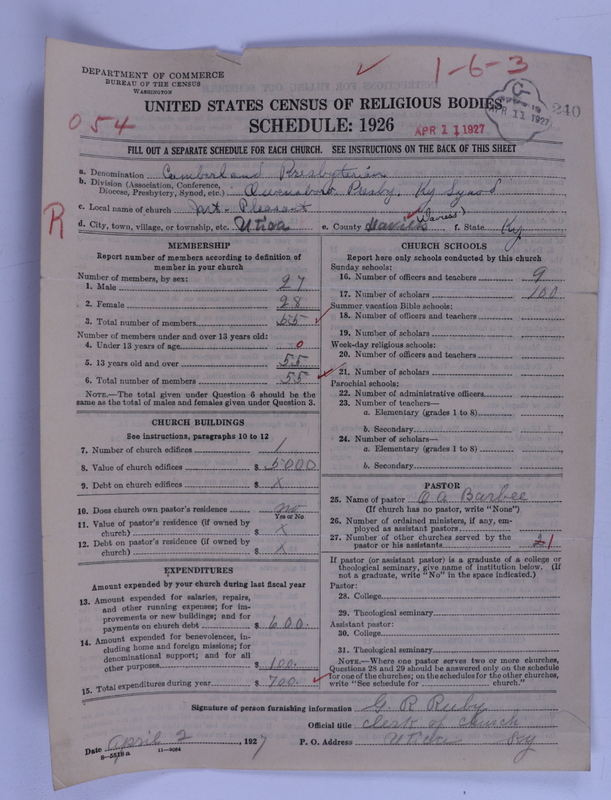 DEPARTMENT OF COMMERCE
BUREAU OF THE CENSUS
WASHINGTON
1-6-3
UNITED STATES CENSUS OF RELIGIOUS BODIES
SCHEDULE: 1926
054
APR 11 1927
APR 11 1927
240
FILL OUT A SEPARATE SCHEDULE FOR EACH CHURCH. SEE INSTRUCTIONS ON THE BACK OF THIS SHEET
a. Denomination Cumberland Presbyterian
b. Division (Association, Conference, Diocese, Presbytery, Synod, etc.) Owensboro Presby. Ky Synod
c. Local name of church Mt. Pleasant
R
d. City, town, village, or township, etc. Utica e. County Davies (Daviess) f. State Ky
MEMBERSHIP
Report number of members according to definition of
member in your church
Number of members, by sex:
1. Male 27
2. Female 28
3. Total number of members 55
Number of members under and over 13 years old:
4. Under 13 years of age 0
5. 13 years old and over 55
6. Total number of members 55
NOTE.—The total given under Question 6 should be the
same as the total of males and females given under Question 3.
CHURCH BUILDINGS
See instructions, paragraphs 10 to 12
7. Number of church edifices 1
8. Value of church edifices $ 5000
9. Debt on church edifices $ X
10. Does church own pastor's residence? no
Yes or No
11. Value of pastor's residence (if owned by
church) $ X
12. Debt on pastor's residence (if owned by
church) $ X
EXPENDITURES
Amount expended by your church during last fiscal year
13. Amount expended for salaries, repairs,
and other running expenses; for im-
provements or new buildings; and for
payments on church debt $ 600.
14. Amount expended for benevolences, in-
cluding home and foreign missions; for
denominational support; and for all
other purposes $ 100.
15. Total expenditures during year $ 700.
CHURCH SCHOOLS
Report here only schools conducted by this church
Sunday schools:
16. Number of officers and teachers 9
17. Number of scholars 100
Summer vacation Bible schools:
18. Number of officers and teachers
19. Number of scholars
Week-day religious schools:
20. Number of officers and teachers
21. Number of scholars
Parochial schools:
22. Number of administrative officers
23. Number of teachers—
a. Elementary (grades 1 to 8)
b. Secondary
24. Number of scholars—
a. Elementary (grades 1 to 8)
b. Secondary
PASTOR
25. Name of pastor O A Barbee
(If church has no pastor, write "None")
26. Number of ordained ministers, if any, em-
ployed as assistant pastors
27. Number of other churches served by the
pastor or his assistants 1
If pastor (or assistant pastor) is a graduate of a college or
theological seminary, give name of institution below. (If
not a graduate, write "No" in the space indicated.)
Pastor:
28. College
29. Theological seminary
Assistant pastor:
30. College
31. Theological seminary
NOTE.—Where one pastor serves two or more churches,
Questions 28 and 29 should be answered only on the schedule
for one of the churches; on the schedules for the other churches,
write "See schedule for ........ church."
Signature of person furnishing information G. R Ruby
Official title Clerk of Church
Date April 2, 1927 P. O. Address Utica Ky
8-5518a 11-9084